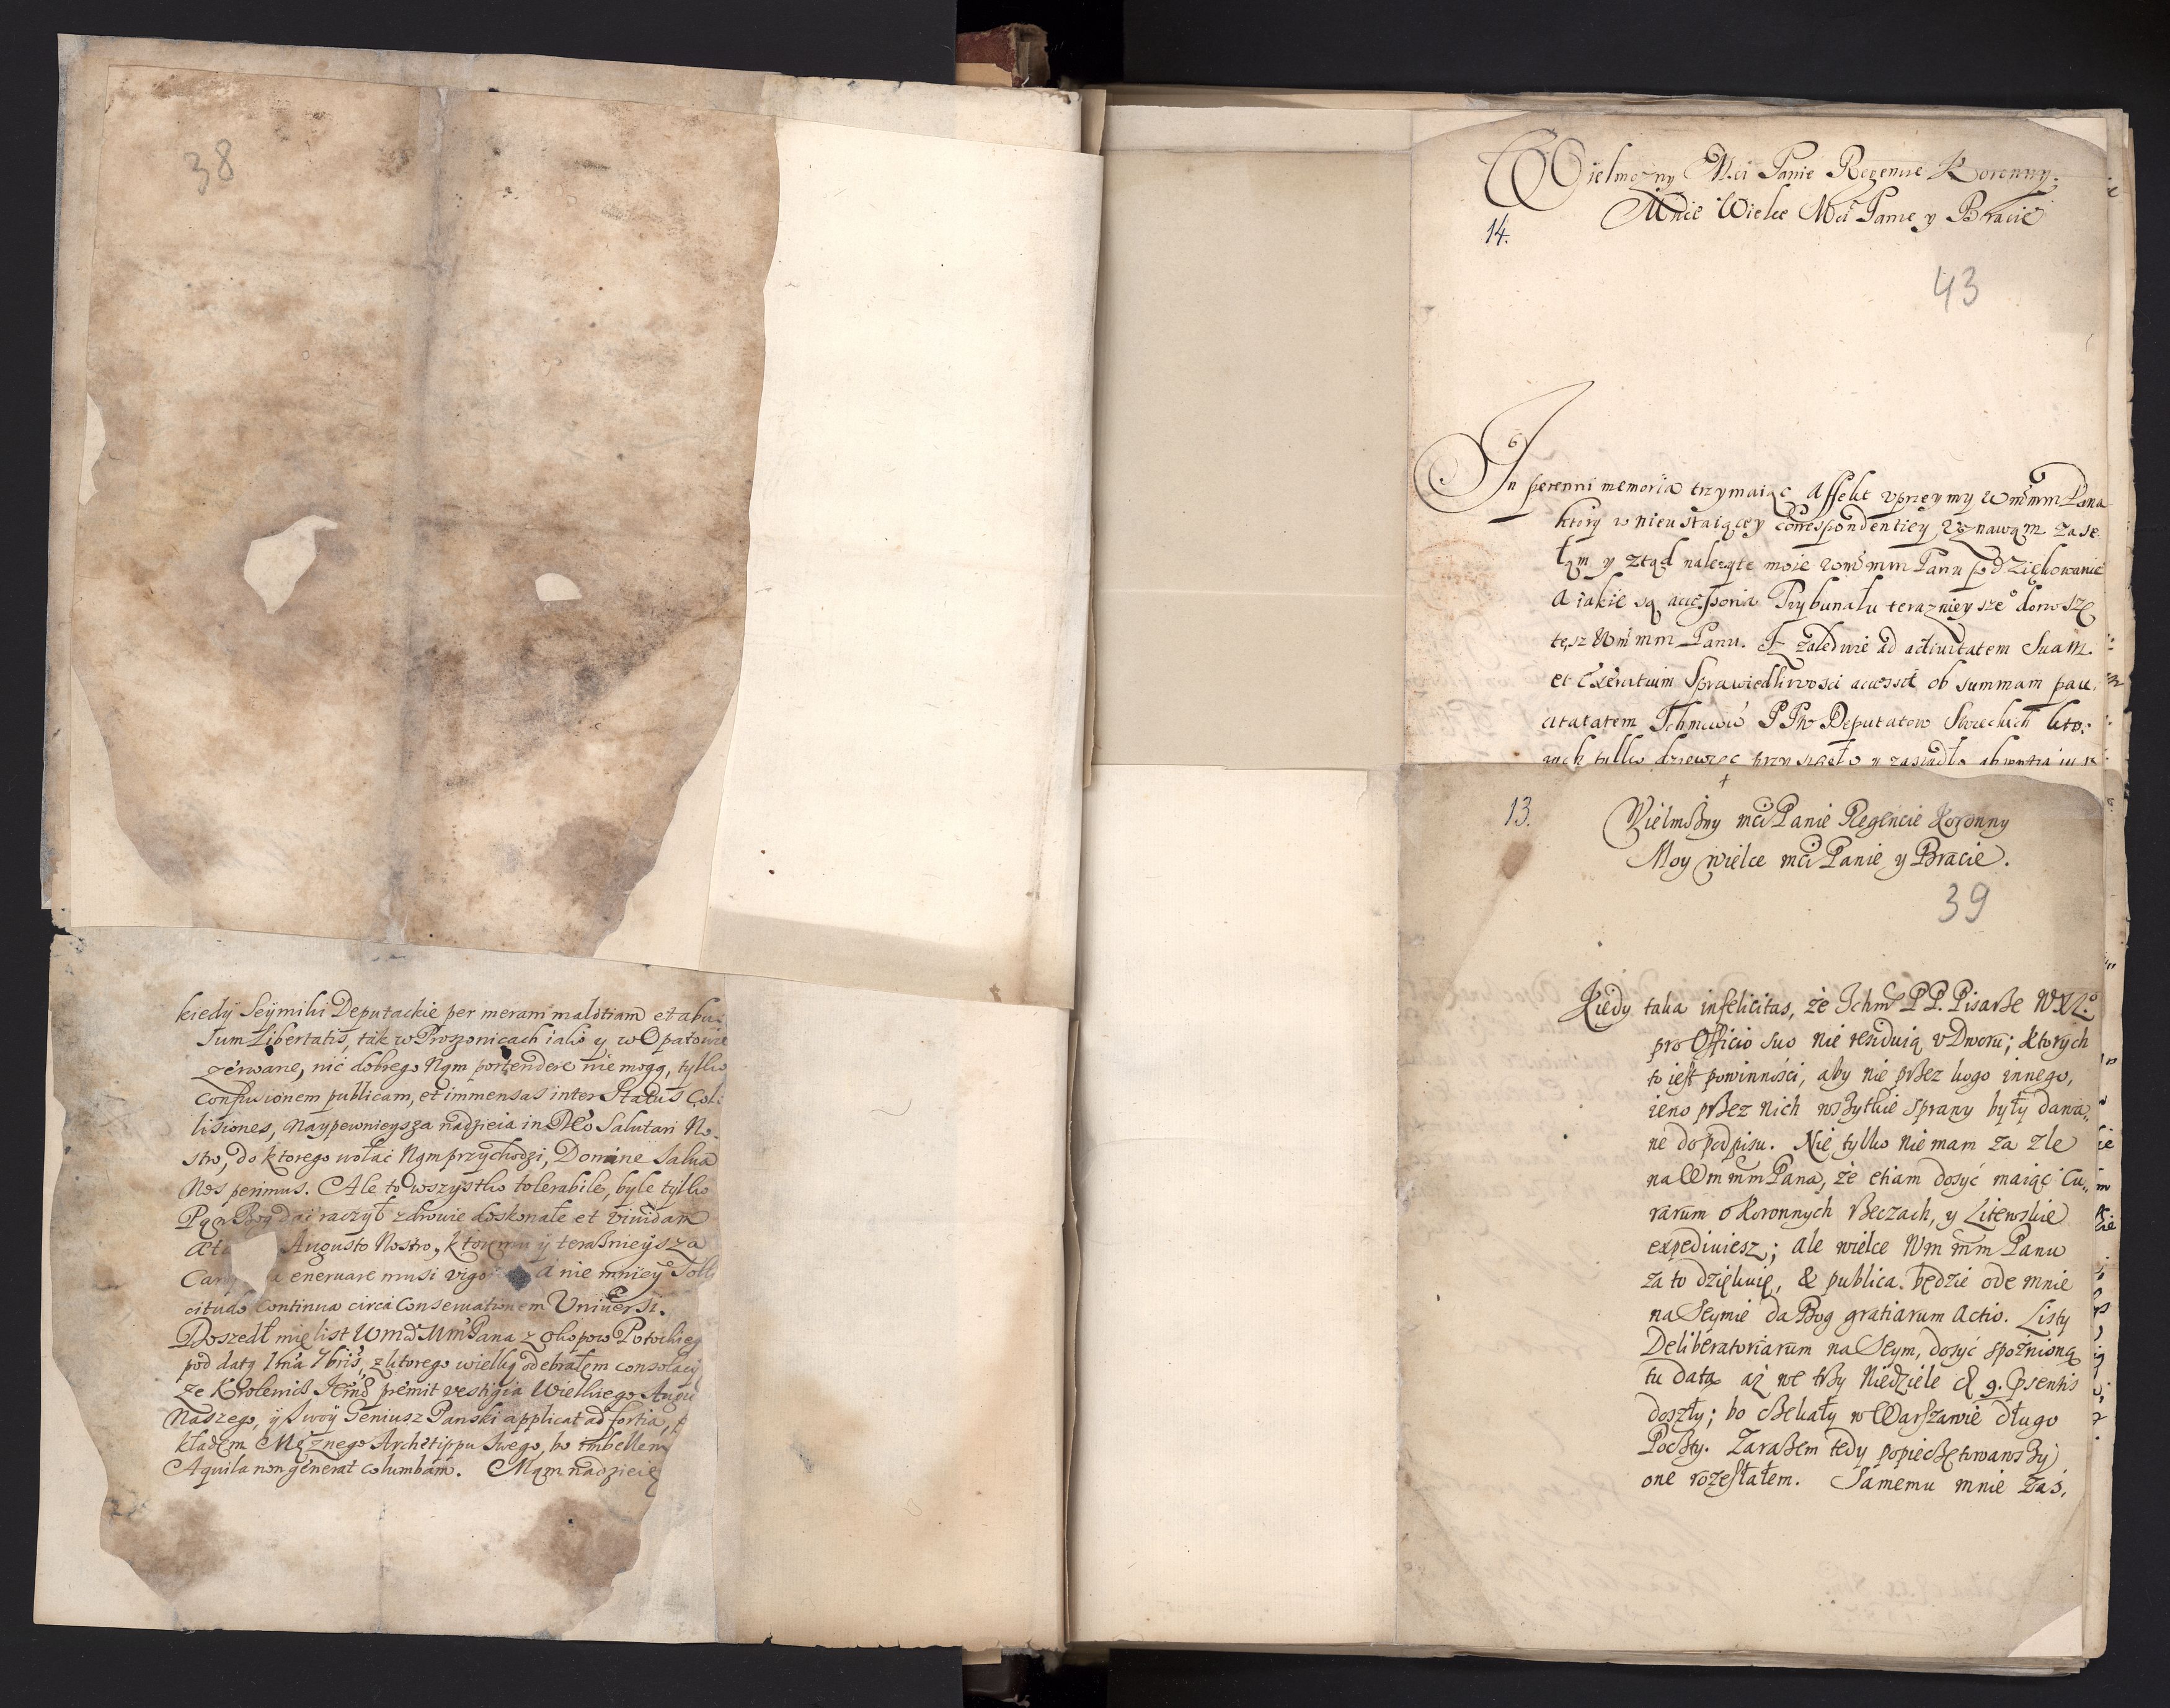 38
kiedÿ Seÿmiki Deputackie per meram malitiam et abu-
sum Libertatis, tak w Proszonicach iako y w Opatowie
zerwane, nic dobrego Nąm portendere nie mogą, tylko
confusionem publicam, et immensas inter Status Col-
lisiones, Naypewnieysza nadzieia in Deo Salutari No-
stro, do ktorego wołać Nąm przychodzi, Domine Salva
Nos perimus. Ale to wszystko tolerabile, byle tylko
Pąn Bog dać raczył zdrowie doskonałe et vividam
Augusto Nostro, ktoremu ÿ teraßnieÿsza
enervare musi vigo a nie mnieÿ Solli
citudo Continua circa Conservationem Universi.
Doszedł mię list Wmċi Mm Pana z okopow Potockieg
pod datą 1ma 7bris, z ktorego wielką odebrałem consolacÿ
że Krolewicz Jemć premit vestigia Wielkiego Augu
Naszego, ÿ swoÿ Geniusz Panski applicat ad fortia, p
kładem Mężnego Archetippu swego, bo imbellem
Aquila non generat columbam. Mąm nadzieię
Wielmożny Mci Panie Regencie Koronny.
Mnie Wielce Mći Panie y Bracie
14.
43
In perenni memoria trzymaiąc Affekt uprzeymy Wmm Pana
ktory w nieustaiącey correspondentiey uznawąm zase
łąm y ztąd należyte moie wmmm Panu podziękowanie
A iakie są accessoria Trybunału teraznieysze° donoszę
tesz Wm mm Panu. Iż zaledwie ad activitatem Suam
et Exercitium Sprawiedliwosci accessit ob summam pau-
citatatem Ichmciow PPw Deputatow Swieckich kto:
rych tylko dziewięc przysięgło y zasiadło absentia
13.
Wielmożny mći Panie Regencie Koronny
Moy wielce mći Panie y Bracie.
39
Kiedy taka infelicitas, że Ichmć PP. Pisarße WXL°
pro Officio suo nie residuią u Dworu; ktorych
to iest powinności, aby nie przez kogo innego,
ieno przez nich wszytkie sprawy były dawa-
ne do podpisu. Nie tylko nie mam za zle
na Wm mm Pana, że etiam dosyć maiąc cu-
rarum o Koronnych rzeczach, y Litewskie
expediuiesz; ale wielce Wm mm Panu
za to dziękuię, & publica będzie ode mnie
na Seymie da Bog gratiarum actio. Listy
Deliberatoriarum na Seym, dosyć spoźnioną
tu datą aż we trzy Niedziele d 9. psentis
doszły; bo czekały w Warszawie długo
Poczty. Zarazem tedy popieczętowawszy
one rozesłałem. Samemu mnie zaś,